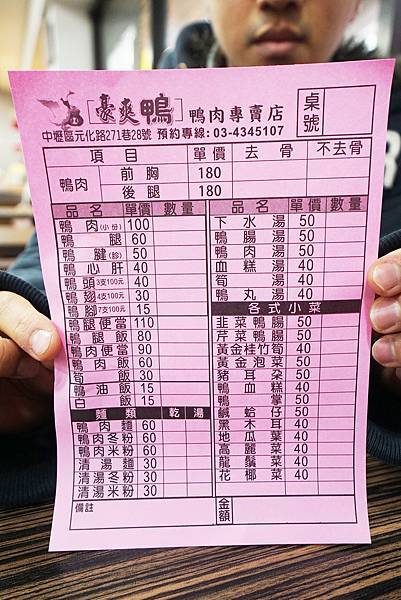 豪爽鴨 鴨肉專賣店 桌號
中壢區元化路271巷28號 預約專線:03-4345107
項目 單價 去骨 不去骨
鴨肉 前胸 180
後腿 180
品名 單價 數量
鴨肉(小份) 100
鴨腿 60
鴨腱(診) 50
鴨心肝 40
鴨頭3支100元 40
鴨翅4支100元 30
鴨腳7支100元 15
鴨腿便當 110
鴨腿飯 80
鴨肉便當 90
鴨肉飯 60
筍飯 30
鴨油飯 15
白飯 15
麵類 乾 湯
鴨肉麵 60
鴨肉冬粉 60
鴨肉米粉 60
清湯麵 30
清湯冬粉 30
清湯米粉 30
備註
品名 單價 數量
下水湯 50
鴨腸湯 50
鴨肉湯 50
血糕湯 40
筍湯 40
鴨丸湯 40
各式小菜
韭菜鴨腸 50
芹菜鴨腸 50
黃金桂竹筍 40
黃金泡菜 50
豬耳朵 50
鴨血糕 40
鴨掌 50
鹹蛤仔 50
黑木耳 40
地瓜葉 40
高麗菜 40
龍鬚菜 40
花椰菜 40
金額